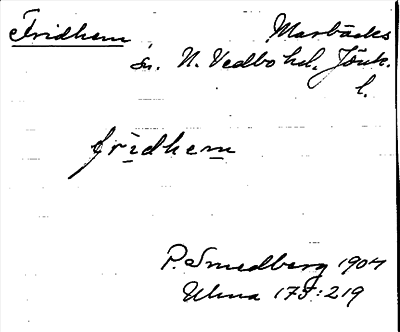 Fridhem Marbäcks
sn. N. Vedbo hd. Jönk.
l.
fridhem
P. Smedberg 1904
Ulma 175:219